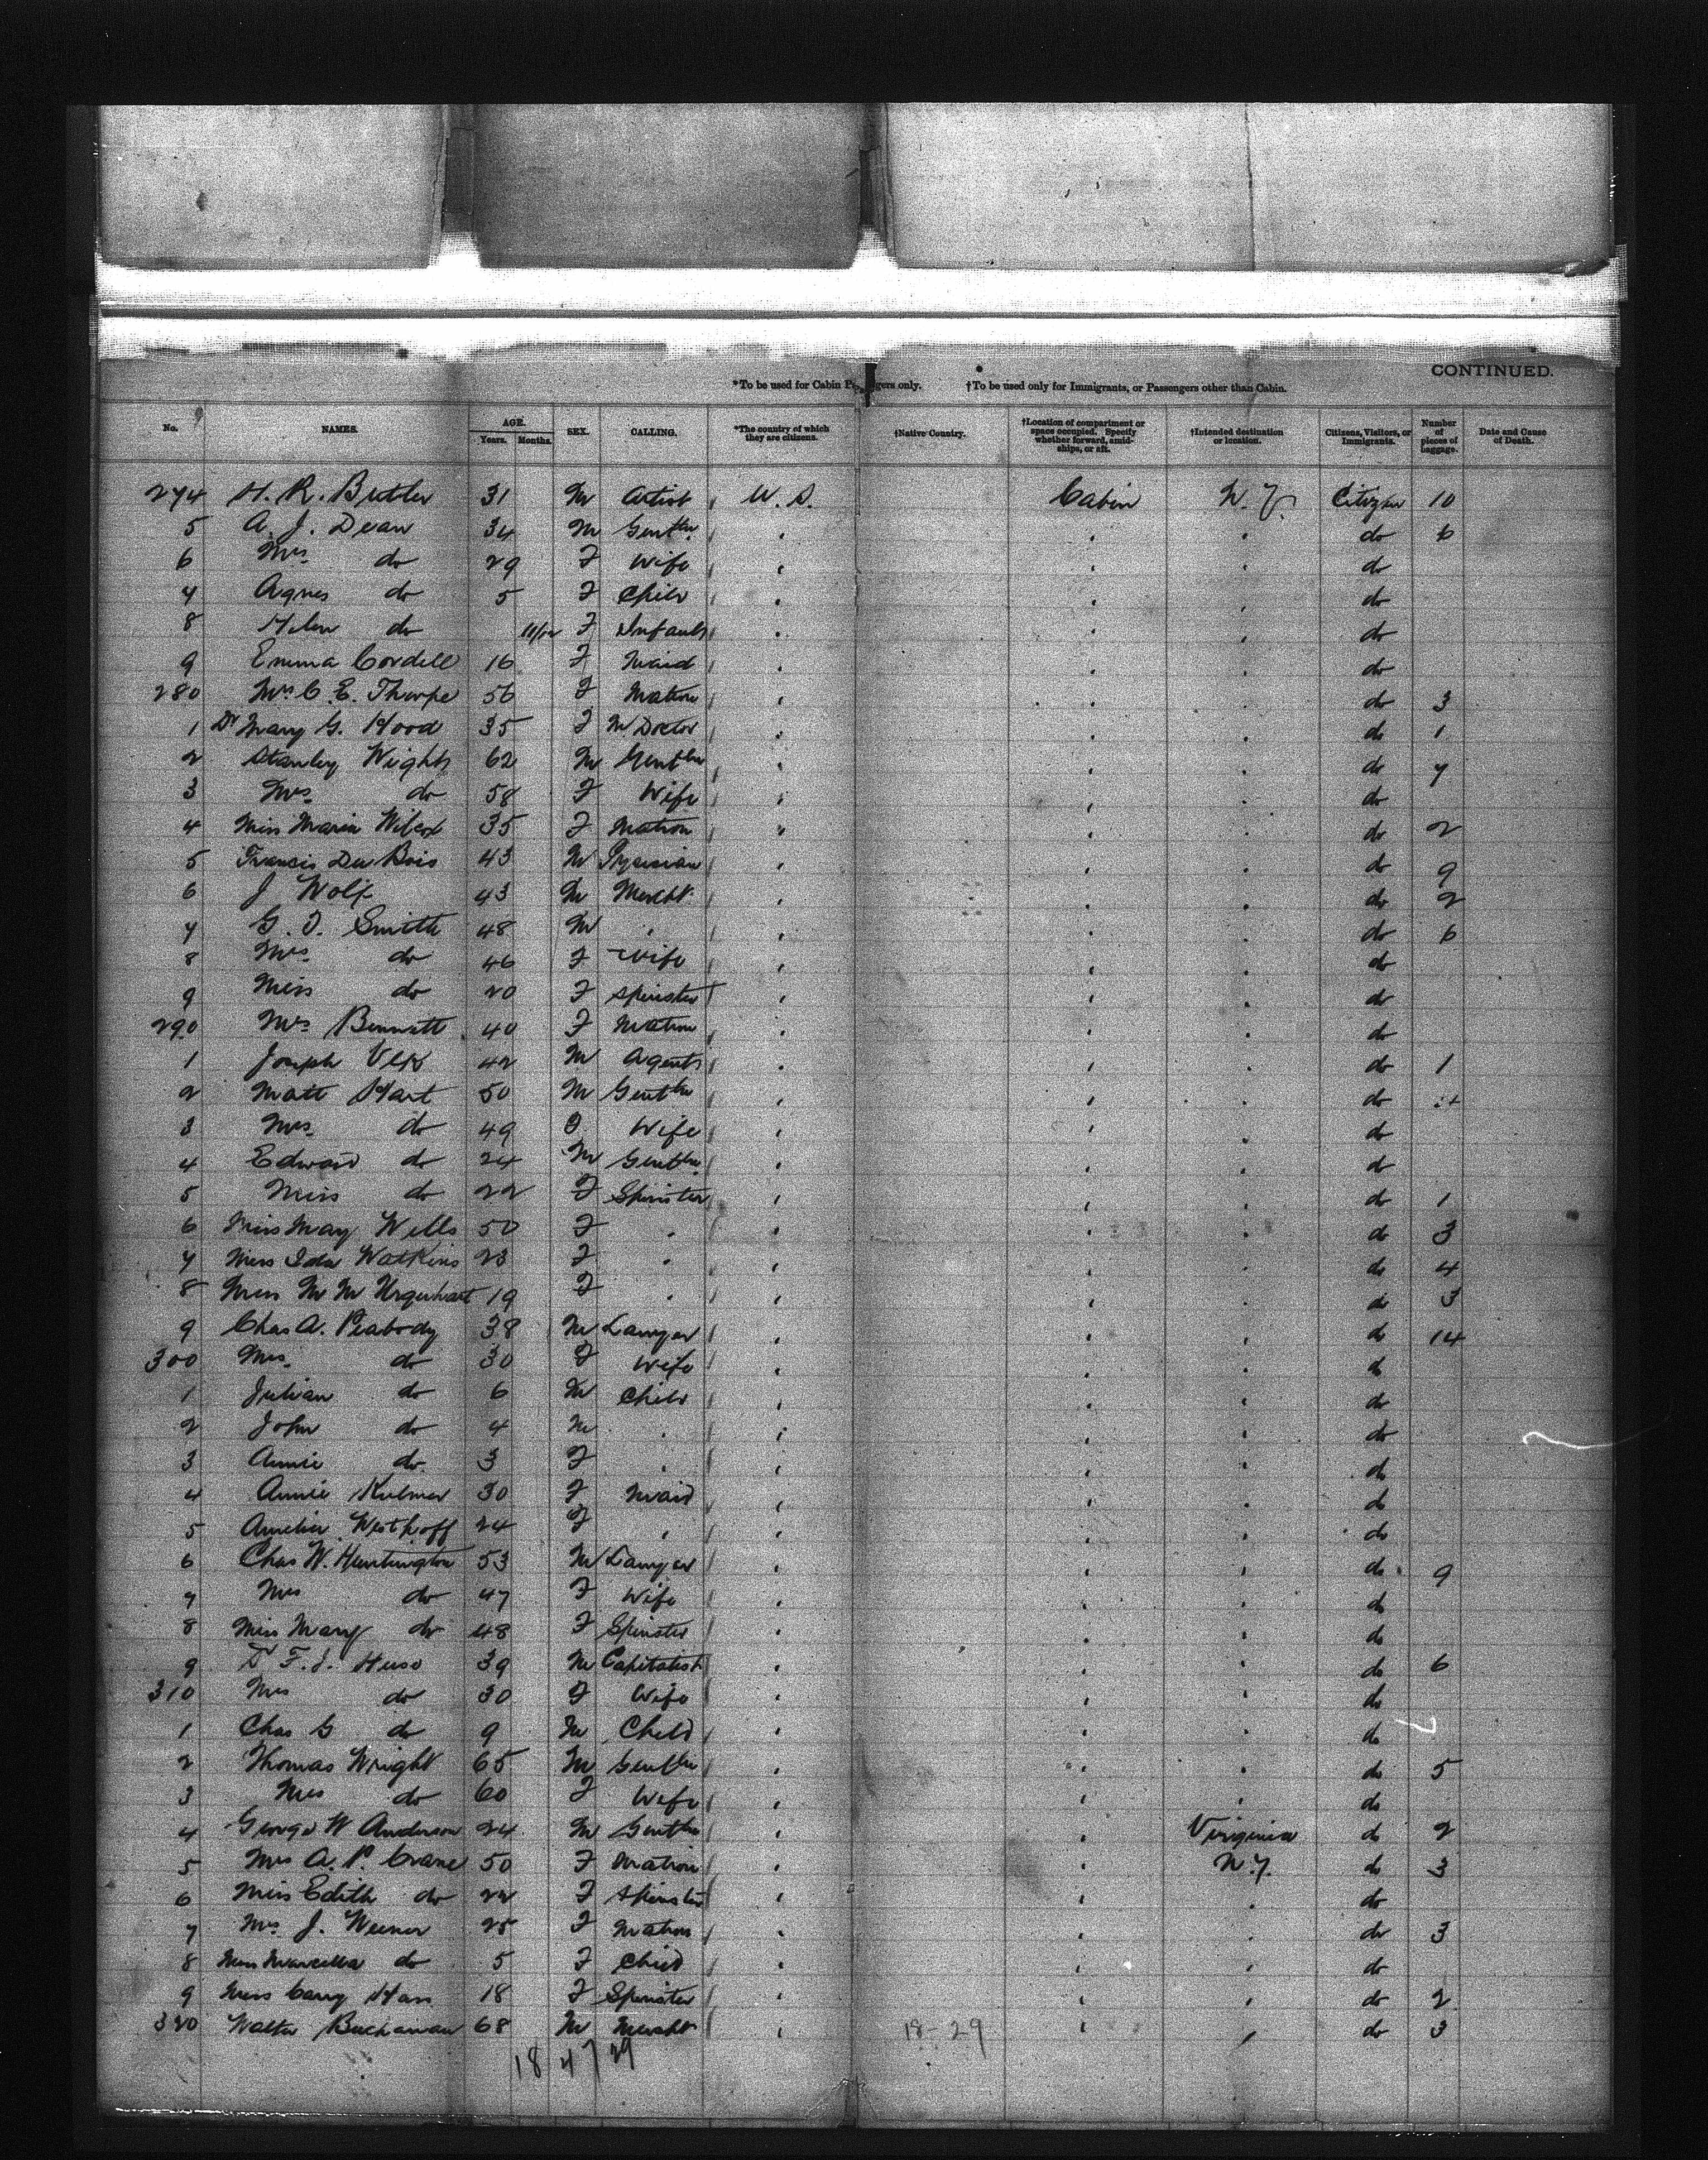 CONTINUED.
*To be used for Cabin Passengers only. †To be used only for Immigrants, or Passengers other than Cabin.
No. NAMES. AGE. Years. Months. SEX. CALLING. *The country of which they are citizens. †Native Country. †Location of compartment or space occupied. Specify whether forward, amidships, or aft. †Intended destination or location. Citizens, Visitors, or Immigrants. Number of pieces of baggage. Date and Cause of Death.
274 H. R. Butler 31 M Artist U. S. Cabin N. Y. Citizen 10
5 A. J. Dean 34 M Gentln " " " do 6
6 Mrs do 29 F Wife " " " do
7 Agnes do 5 F Child " " " do
8 Helen do 11/12 F Infant " " " do
9 Emma Cordell 16 F Maid " " " do
280 Mrs C. E. Thorpe 56 F Matron " " " do 3
1 Dr Mary G. Hood 35 F M Doctor " " " do 1
2 Stanley Wight 62 M Gentln " " " do 7
3 Mrs do 58 F Wife " " " do
4 Miss Maria Wilcox 35 F Matron " " " do 2
5 Francis Du Bois 43 M " " " do 9
6 J Wolf 43 M Mercht " " " do 2
7 G. D. Smith 48 M " " " " do 6
8 Mrs do 46 F Wife " " " do
9 Miss do 20 F Spinster " " " do
290 Mrs Bennett 40 F Matron " " " do
1 Joseph 42 M Agent " " " do 1
2 Matt Hart 50 M Gentln " " " do
3 Mrs do 49 F Wife " " " do
4 Edward do 24 M Gentln " " " do
5 Miss do 22 F Spinster " " " do 1
6 Miss May Wells 50 F " " " " do 3
7 Miss Ida Watkins 23 F " " " " do 4
8 Miss M M Urquhart 19 F " " " " do 3
9 Chas A. Peabody 38 M Lawyer " " " do 14
300 Mrs. do 30 F Wife " " " do
1 Julian do 6 M Child " " " do
2 John do 4 M " " " " do
3 Annie do 3 F " " " " do
4 Annie Kulmer 30 F Maid " " " do
5 Amelia Westhoff 24 F " " " " do
6 Chas W. Huntington 53 M Lawyer " " " do 9
7 Mrs do 47 F Wife " " " do
8 Miss Mary do 48 F Spinster " " " do
9 Dr F. J. Huse 39 M Capitalist " " " do 6
310 Mrs do 30 F Wife " " " do
1 Chas G do 9 M Child " " " do
2 Thomas Wright 65 M Gentln " " " do 5
3 Mrs do 60 F Wife " " " do
4 George W Anderson 24 M Gentln " " Virginia do 2
5 Mrs A. P. Crane 50 F Matron " " N. Y. do 3
6 Miss Edith do 22 F Spinster " " " do
7 Mrs J. Weener 25 F Matron " " " do 3
8 Miss Marcella do 5 F Child " " " do
9 Miss Carry Hass 18 F Spinster " " " do 2
320 Walter Buchanan 68 M Mercht " " " do 3
18-29
18 47 29